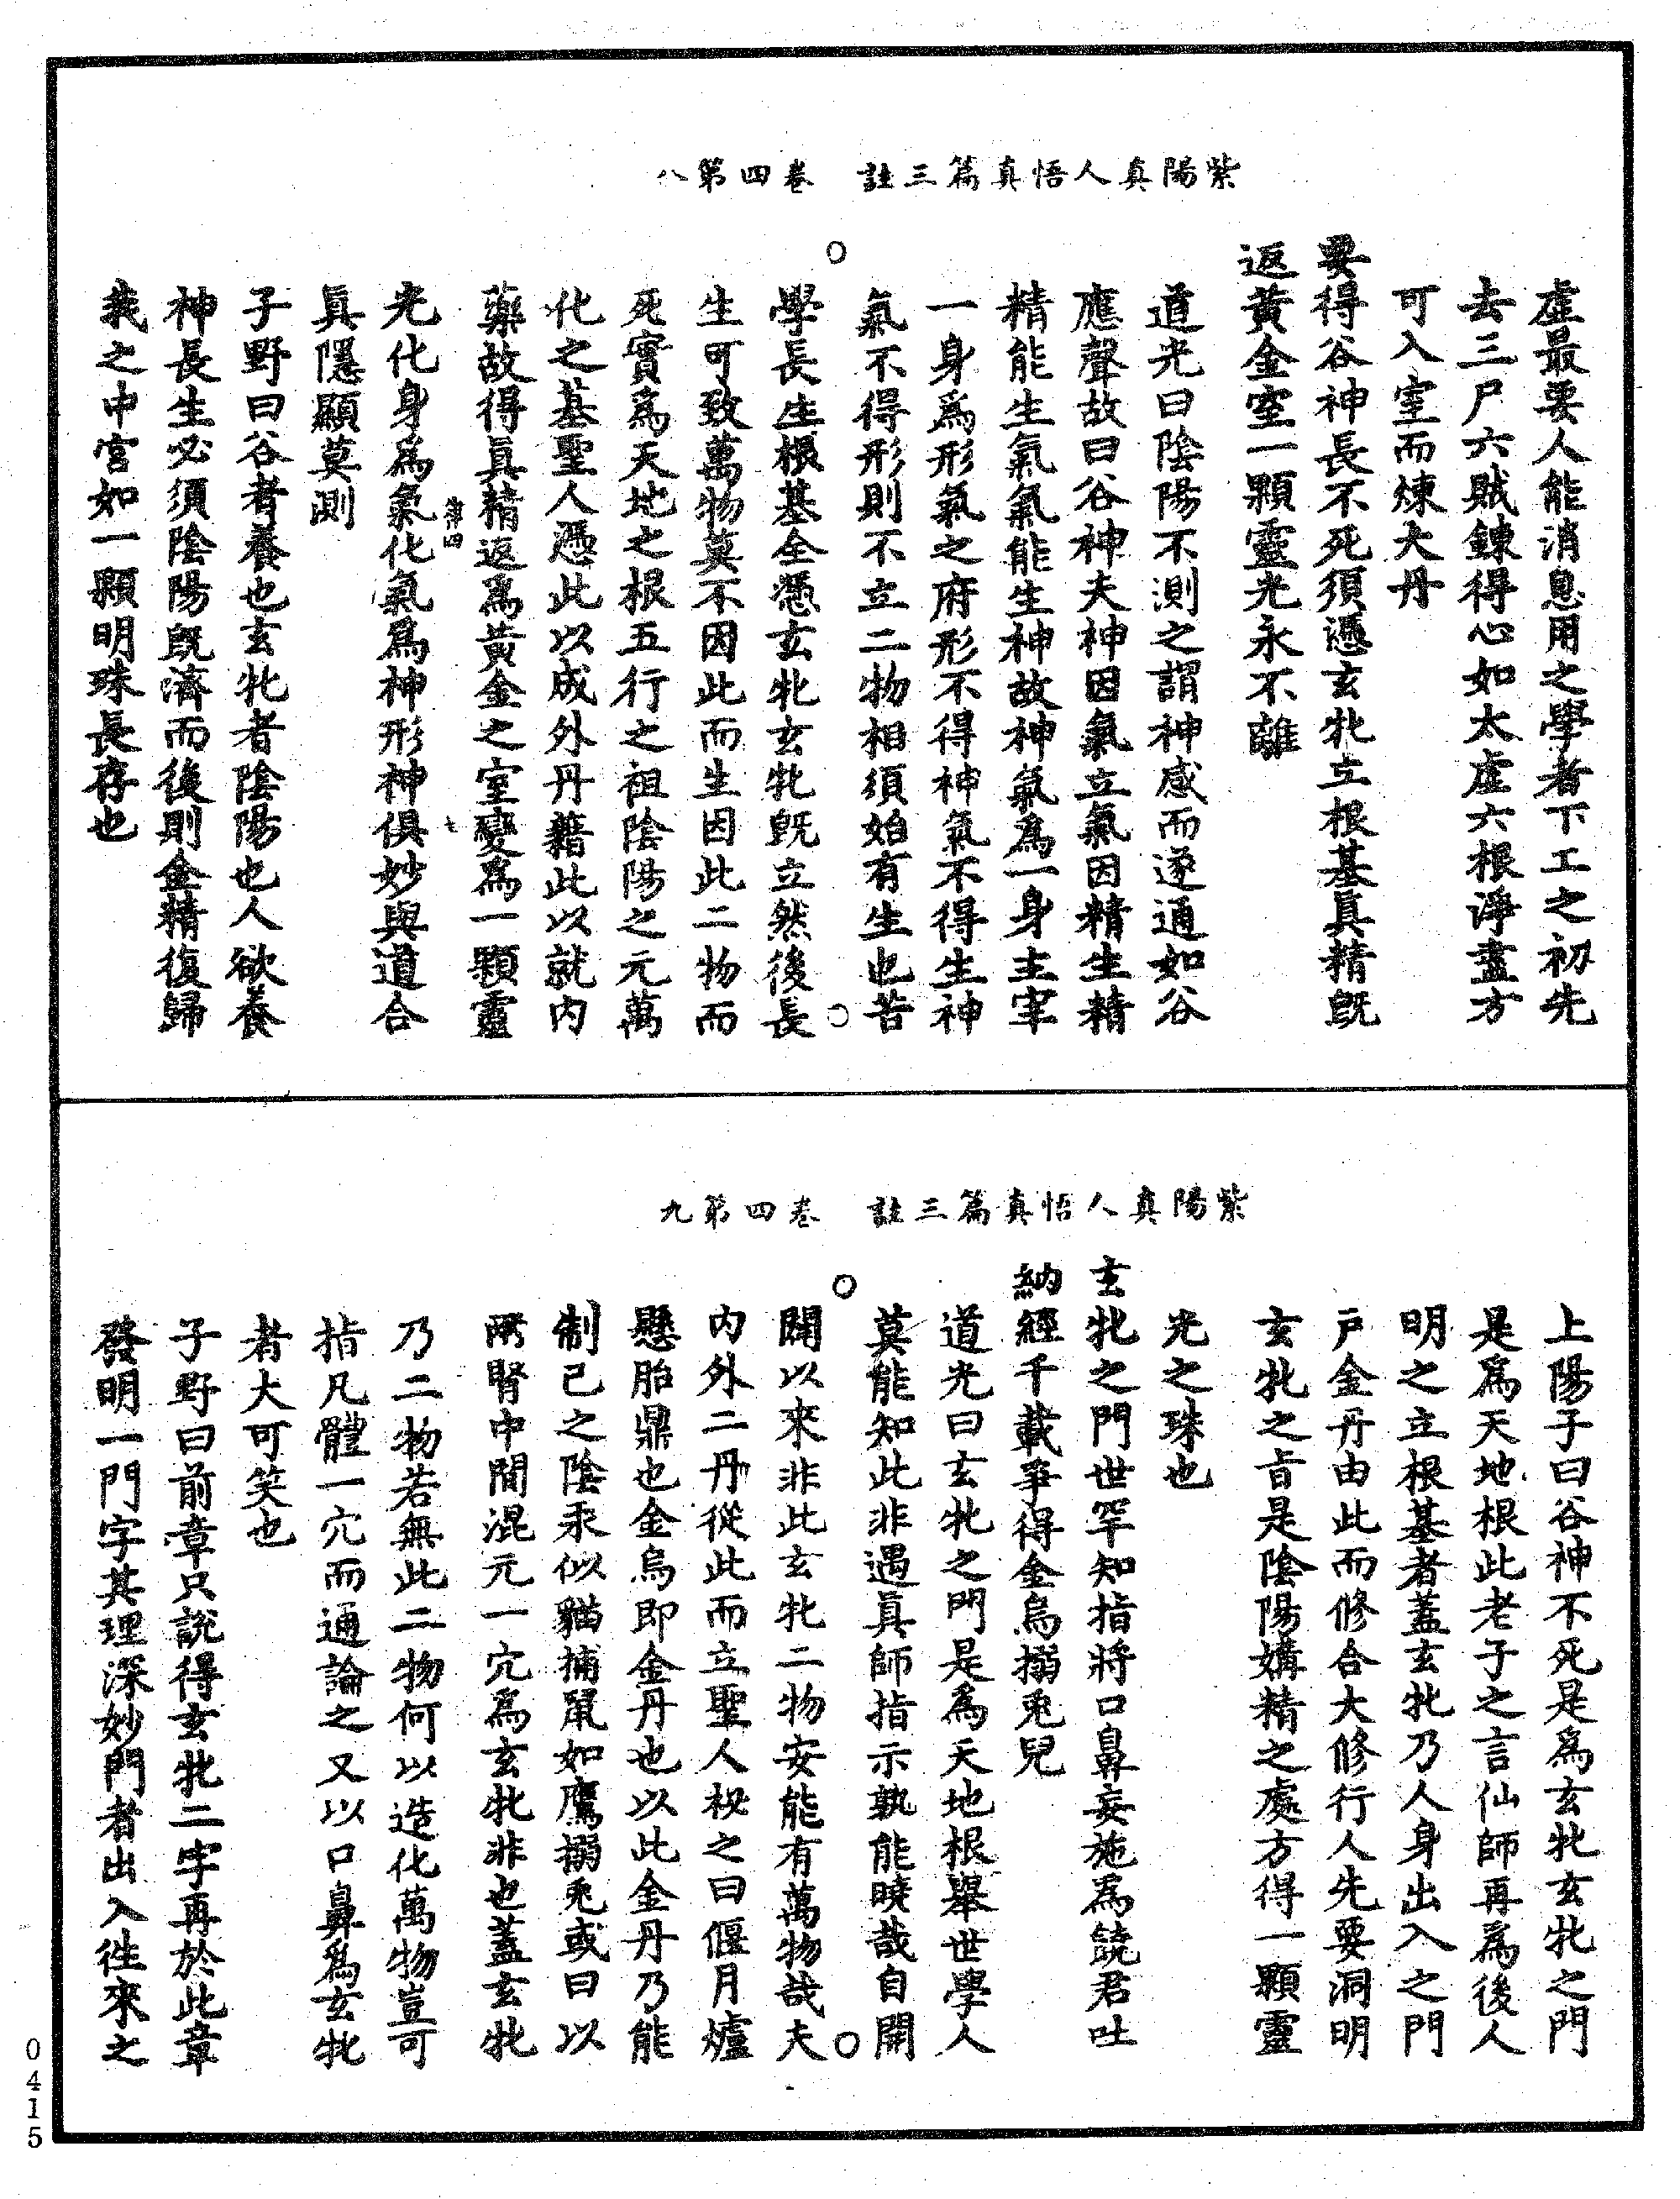 紫陽真人悟真篇三註　卷四第八
虛最要人能消息用之學者下工之初先
去三尸六賊錬得心如太虛六根淨盡方
可入室而煉大丹
要得谷神長不死須憑玄牝立根基真精旣
返黃金室一顆靈光永不離
道光曰陰陽不測之謂神感而遂通如谷
應聲故曰谷神夫神因氣立氣因精生精
精能生氣氣能生神故神氣爲一身主宰
一身爲形氣之府形不得神氣不得生神
氣不得形則不立二物相須始有生也苦
學長生根基全憑玄牝玄牝旣立然後長
生可致萬物莫不因此而生因此二物而
死實爲天地之根五行之祖陰陽之元萬
化之基聖人憑此以成外丹藉此以就內
藥故得眞精返爲黃金之室變爲一顆靈
光化身爲氣化氣爲神形神俱妙與道合
眞隱顯莫測
子野曰谷者養也玄牝者陰陽也人欲養
神長生必須陰陽旣濟而後則金精復歸
我之中宮如一顆明珠長存也
紫陽真人悟真篇三註　卷四第九
上陽子曰谷神不死是爲玄牝玄牝之門
是爲天地根此老子之言仙師再爲後人
明之立根基者蓋玄牝乃人身出入之門
戶金丹由此而修合大修行人先要洞明
玄牝之旨是陰陽媾精之處方得一顆靈
光之珠也
玄牝之門世罕知指將口鼻妄施爲饒君吐
納經千載爭得金烏搦兎兒
道光曰玄牝之門是爲天地根舉世學人
莫能知此非遇眞師指示孰能曉哉自開
闢以來非此玄牝二物安能有萬物哉夫
內外二丹從此而立聖人秘之曰偃月爐
懸胎鼎也金烏即金丹也以此金丹乃能
制己之陰汞似貓捕鼠如鷹搦兎或曰以
兩腎中間混元一穴爲玄牝非也蓋玄牝
乃二物若無此二物何以造化萬物豈可
指凡體一穴而通論之又以口鼻爲玄牝
者大可笑也
子野曰前章只說得玄牝二字再於此章
發明一門字其理深妙門者出入往來之
0415